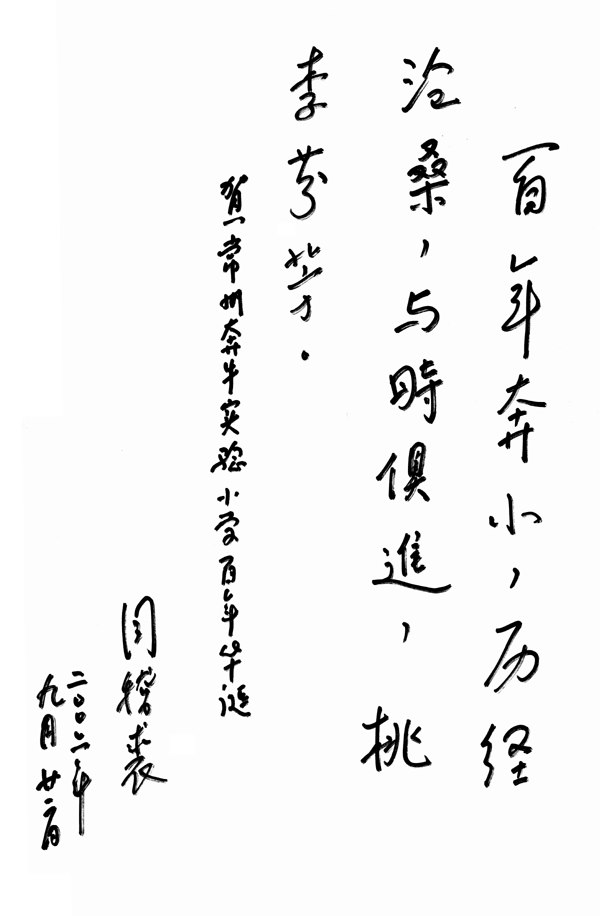 百年奔小，历经
沧桑，与時俱進，桃
李芬芳。
贺常州奔牛实验小学百年华诞
周稽裘
二〇〇六年
九月廿二日